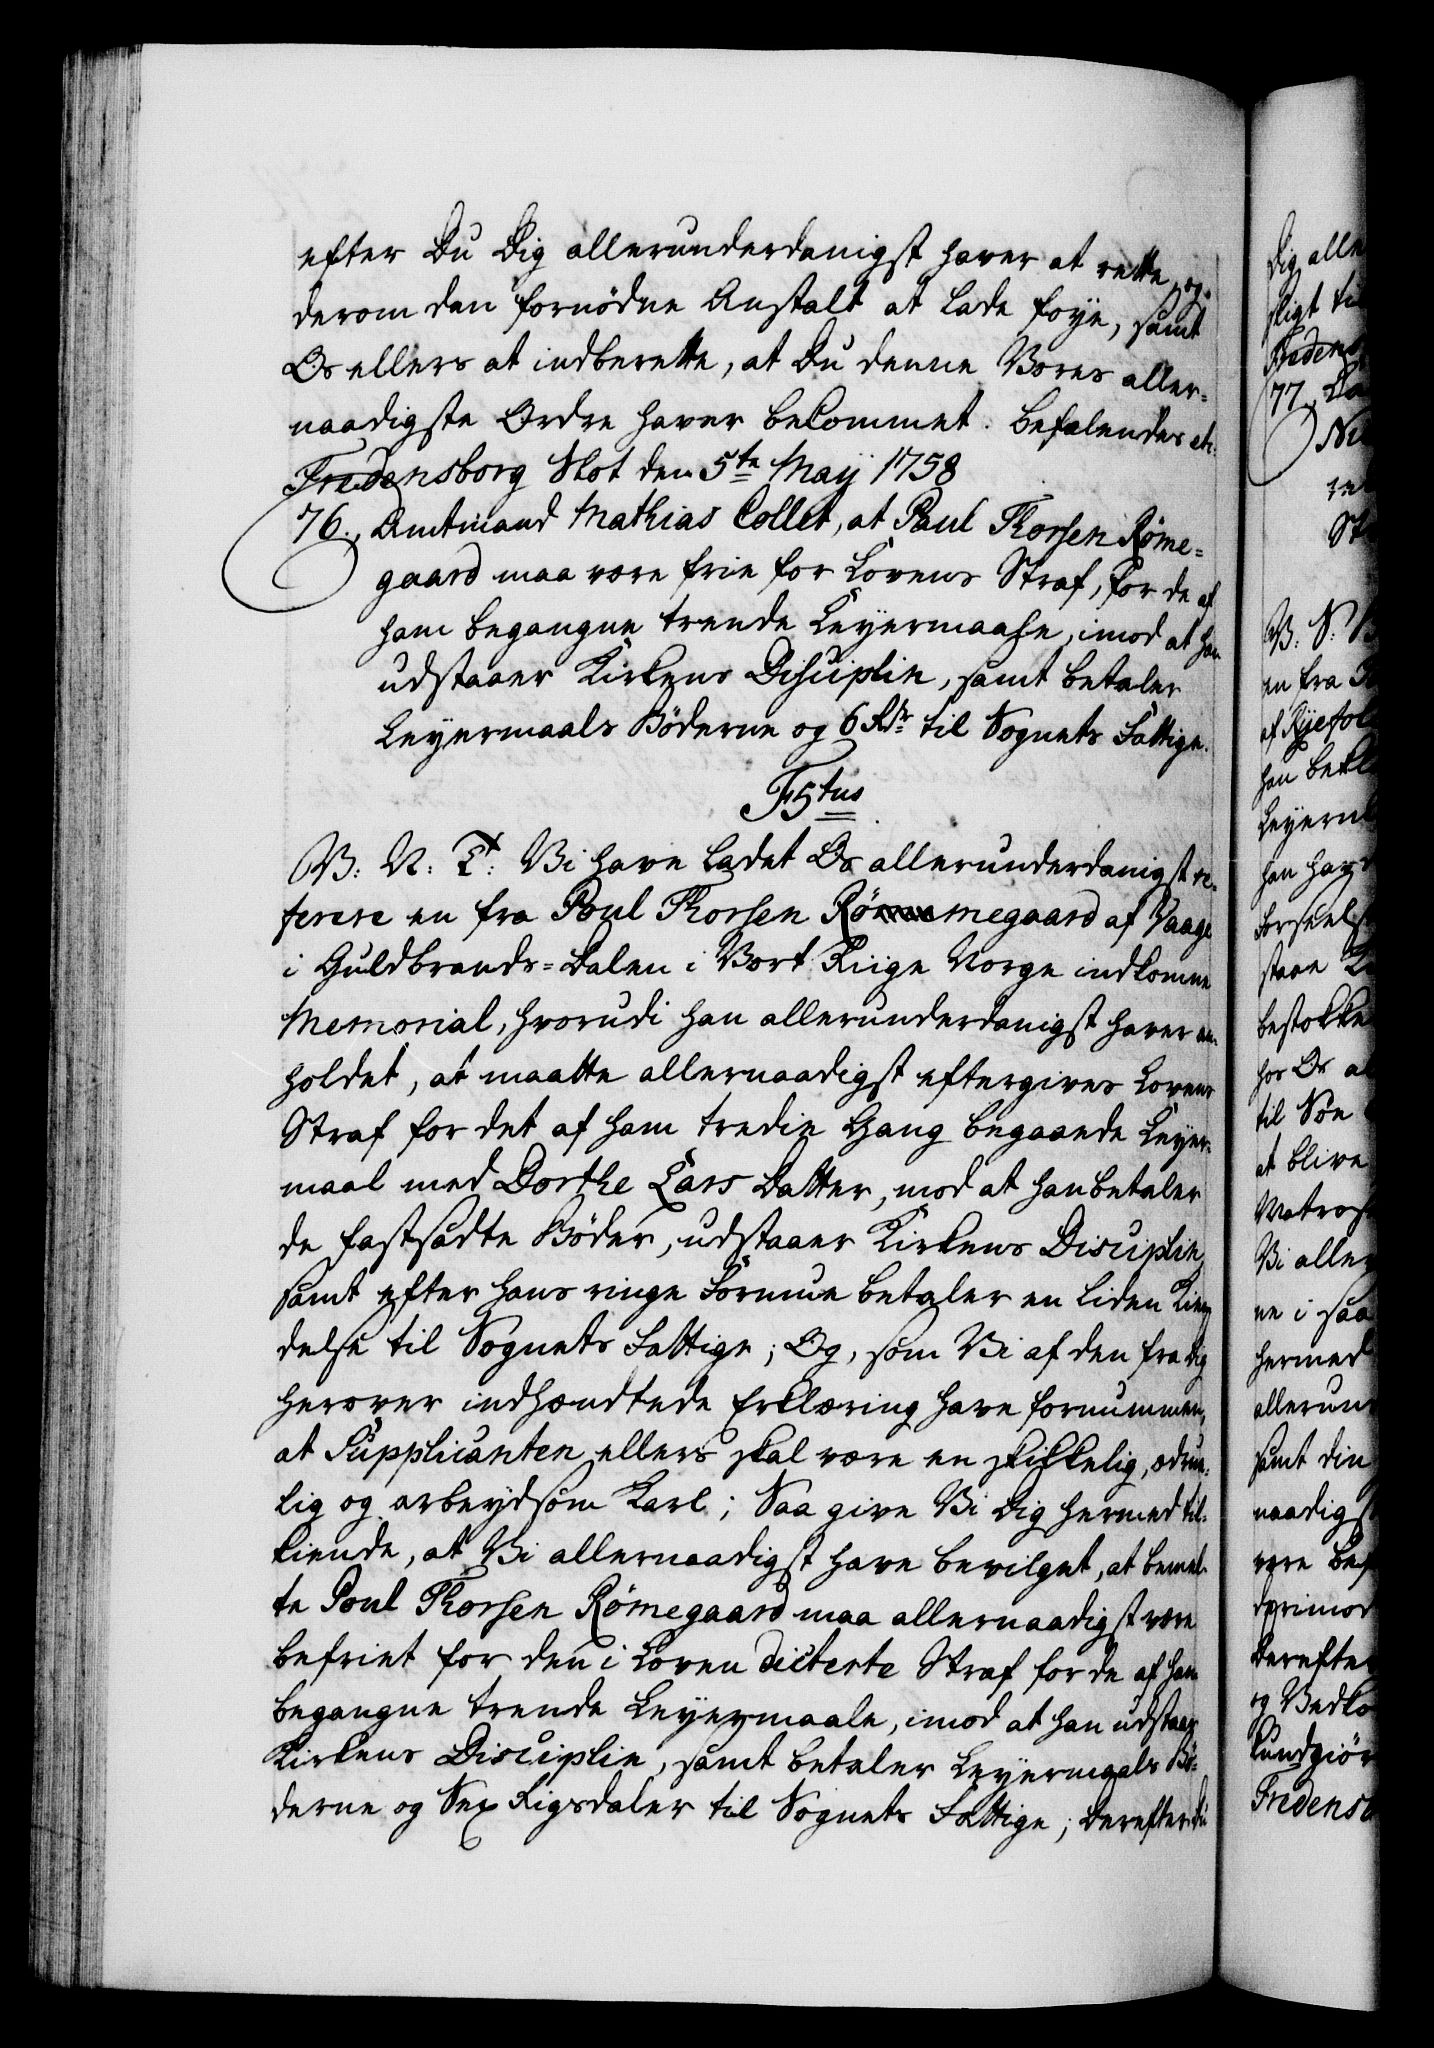 efter Du Dig allerunderdanigst haver at rette, og
derom den fornødne Anstalt at lade føye, samt
Os ellers at indberette, at Du denne Vores aller-
naadigste Ordre haver bekommet. Befalendes etc:
Fredensborg Slot den 5te Maÿ 1758
76., Amtmand Mathias Collet, at Paul Thorsen Røme-
gaard maa være frie for Lovens Straf, for de af
ham begangne trende Leÿermaale, imod at han
udstaaer Kirkens Disciplin, samt betaler
Leyermaals Bøderne og 6 Rdr til Sognets Fattige.
F5tus
V: N: T: Vi have ladet Os allerunderdanigst re-
ferere en fra Poul Thorsen Rømegaard af Vaage
i Guldbrands-Dalen i Vort Riige Norge indkomne
Memorial, hvorudi han allerunderdanigst haver an-
holdet, at maatte allernaadigst eftergives Lovens
Straf for det af ham tredie Gang begaaede Leyer-
maal med Dorthe Lars Datter, mod at han betaler
de fastsadte Bøder, udstaaer Kirkens Disciplin
samt efter hans ringe Formue betaler en liden Kien-
delse til Sognets Fattige; Og, som Vi af den fra dig
herover indhændtede Erklæring have fornummen,
at Supplicanten ellers skal være en skikkelig, ædrue-
lig og arbeydsom Karl; Saa give Vi dig hermed til-
kiende, at Vi allernaadigst have bevilget, at bemel-
te Poul Thorsen Rømegaard maa allernaadigst være
befriet for den i Loven dicterte Straf for de af ham
begangne trende Leyermaale, imod at han udstaar
Kirkens Disciplin, samt betaler Leyermaals Bø-
derne og Sex Rigsdaler til Sognets Fattige; Derefter Du
Dig alle
sligt til
Fredens
77.,
V: N:
en fra
af Ryefol
han bekl
Leyerm
han hav
Forseels
staae
bestokke
hos Os al
til Søe
at blive
Matros
Vi aller
ne i saa
hermed
allerun
samt din
naadigs
være bef
derimod
Derefter
og Vedko
kundgiør
Fredensb